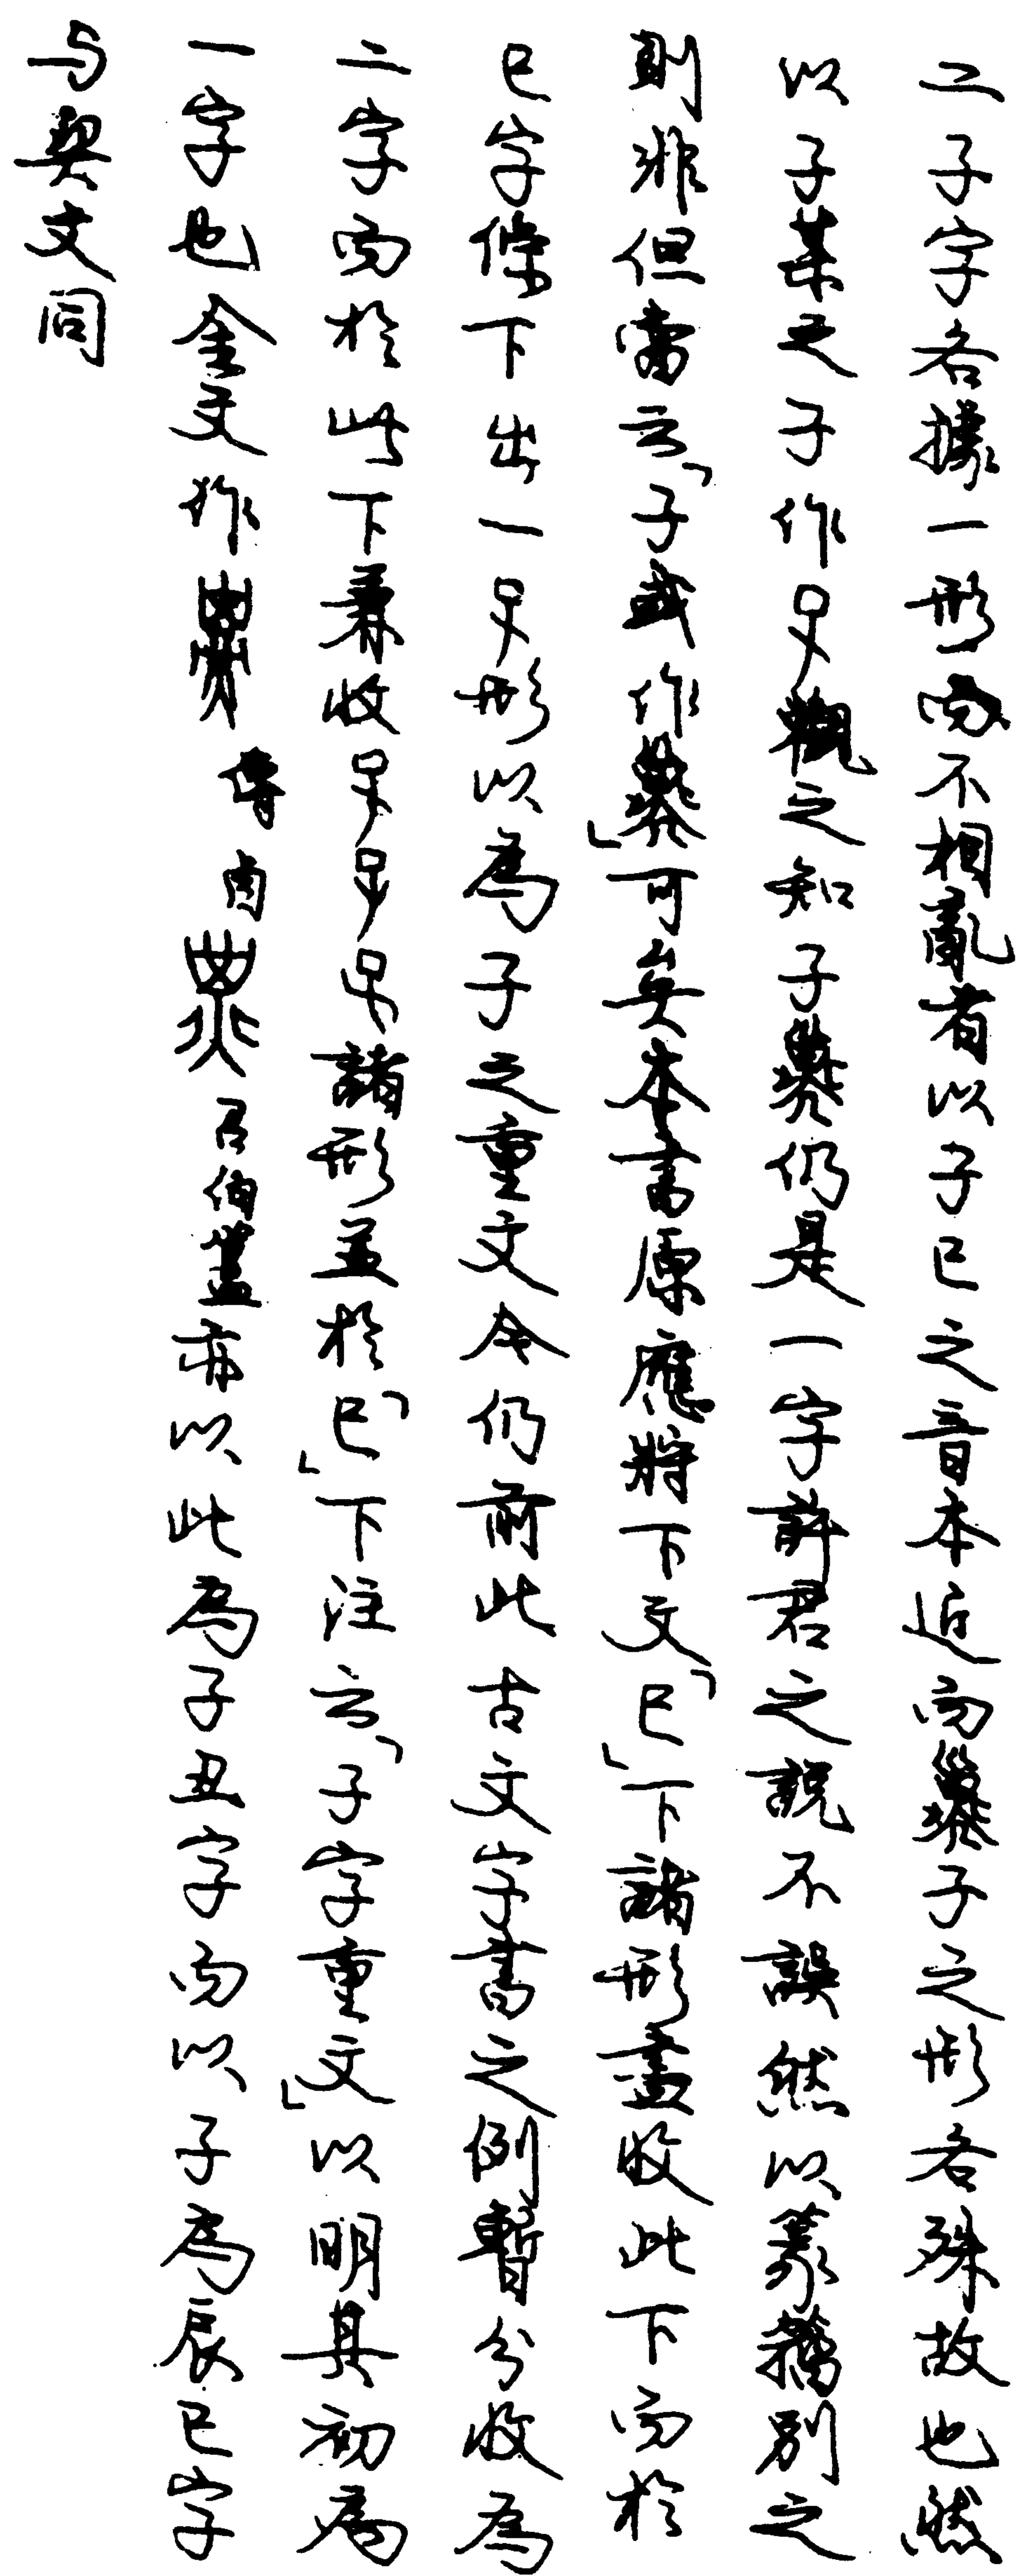 二子字各據一形而不相亂者以子巳之音本近而子之形各殊故也然
以子某之子作觀之知子仍是一字許君之說不誤然以篆籀別之
則非但當云「子或作」可矣本書原應將下文「巳」下諸形盡收此下而於
巳字條下出一形以為子之重文今仍前此古文字書之例暫分收為
二字而於此下兼收諸形並於「巳」下注云「子字重文」以明其初為
一字也金文作傳卣召伯簋亦以此為子丑字而以子為辰巳字
与契文同